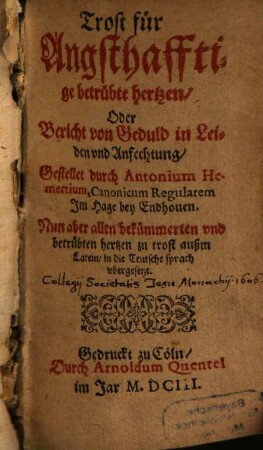 Trost für
Angsthaffti-
ge betrübte hertzen/
Oder
Bericht von Geduld in Lei-
den vnd Anfechtung/
Gestellet durch Antonium He-
mertium, Canonicum Regularem
Im Hage bey Endhouen.
Nun aber allen bekümmerten vnd
betrübten hertzen zu trost außm
Latein/ in die Teutsche sprach
vbergesetzt.
Collegij Societatis Iesu Monachij 1606
Gedruckt zu Cöln/
Durch Arnoldum Quentel
im Jar M. DCIII.